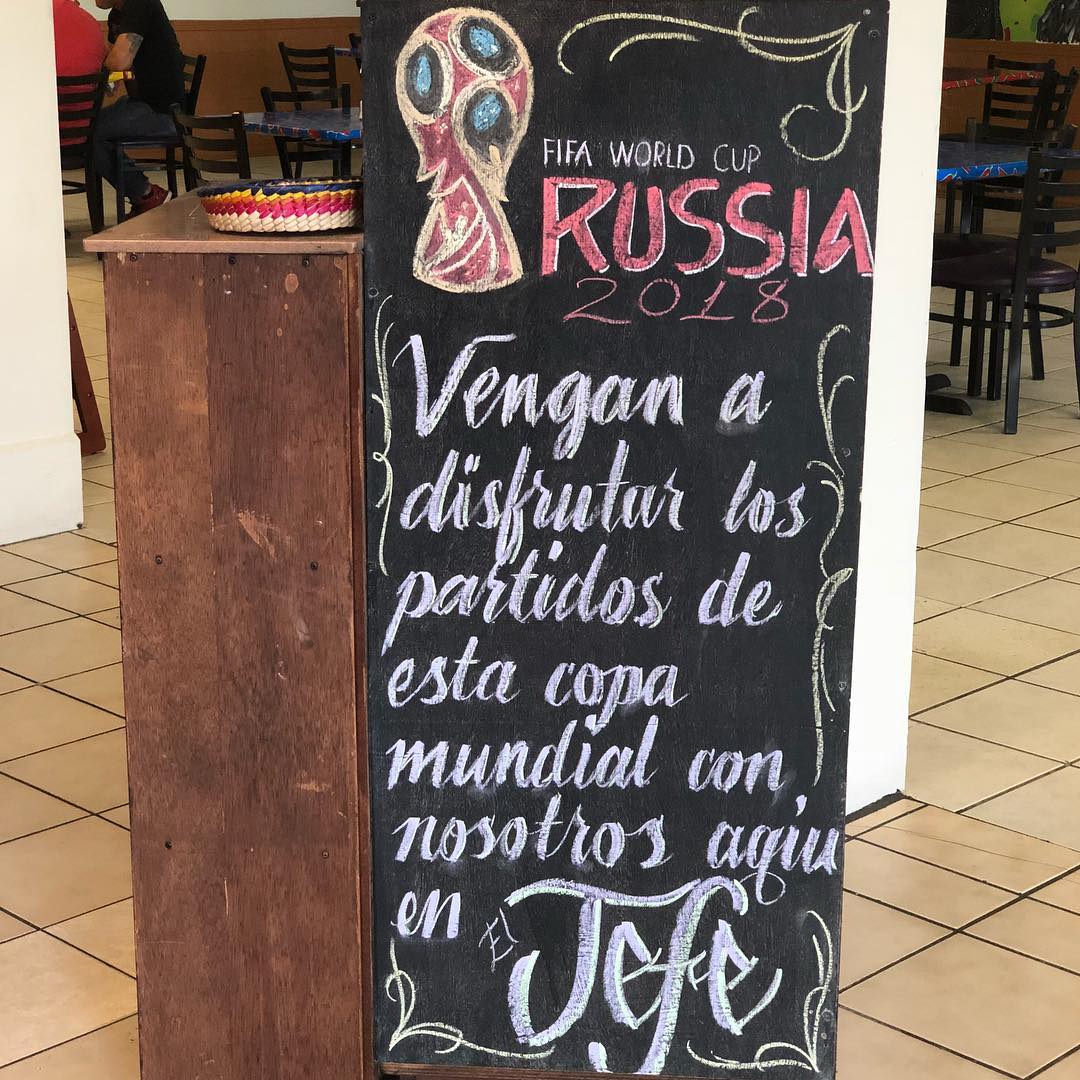 FIFA WORLD CUP
RUSSIA
2018
Vengan a
disfrutar los
partidos de
esta copa
mundial con
nosotros aqiu
en El Jefe